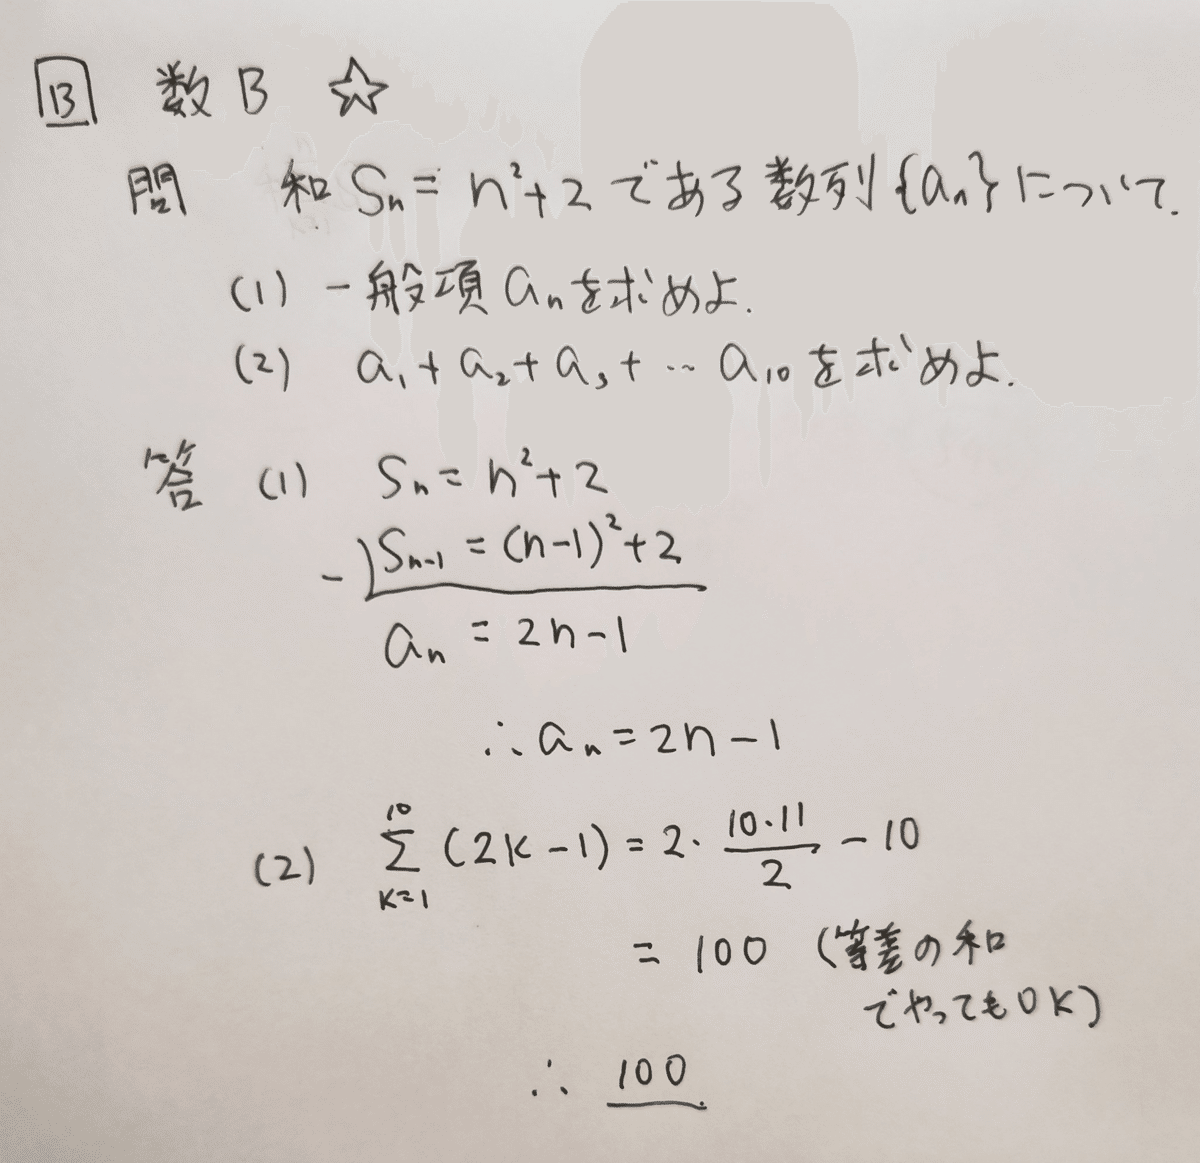 13 数B ☆
問 和 Sn = n²+2 である数列{an}について.
(1) 一般項 an を求めよ.
(2) a₁+a₂+a₃+‥a₁₀を求めよ.
答 (1) Sn = n²+2
-)Sn-1 = (n-1)²+2
an = 2n-1
∴an=2n-1
(2) 10Σk=1 (2k-1)=2・10・11/2-10
= 100 (等差の和
でやってもOK)
∴ 100.